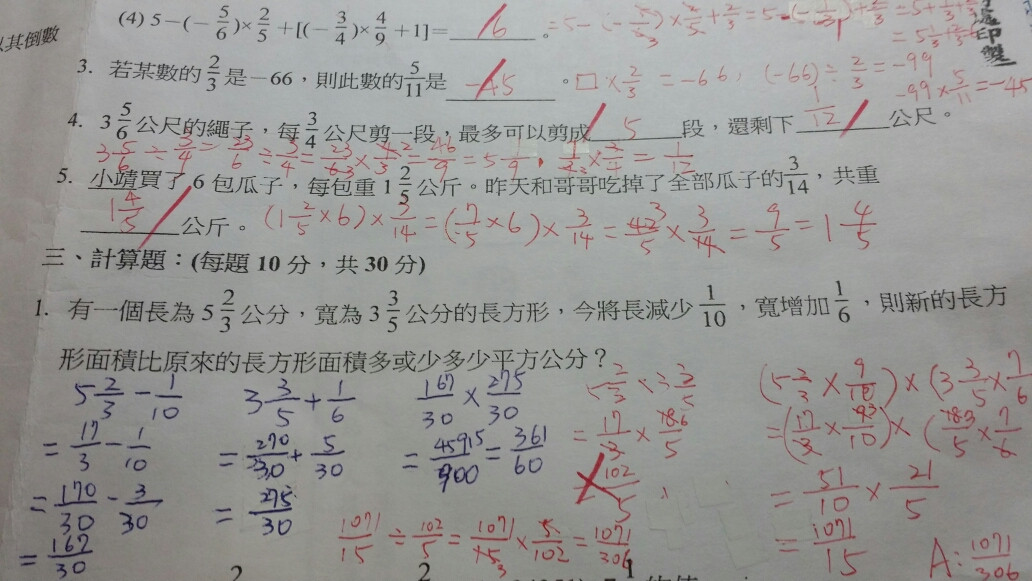 以其倒數
(4) 5－(－5/6)×2/5＋[(－3/4)×4/9 ＋1]= 6 。
=5-(-5/6)×2/5+2/3=5-(-1/3)+2/3=5+1/3+2/3
3. 若某數的 2/3 是－66，則此數的 5/11 是 -45 。
□×2/3=-66，(-66)÷2/3=-99
-99×5/11=-45
4. 3 5/6 公尺的繩子，每 3/4 公尺剪一段，最多可以剪成 5 段，還剩下 1/12 公尺。
3 5/6÷3/4=23/6÷3/4=23/6×4/3=46/9=5 1/9，
=1/12
5. 小靖買了 6 包瓜子，每包重 1 2/5 公斤。昨天和哥哥吃掉了全部瓜子的 3/14，共重
1 4/5 公斤。
(1 2/5×6)×3/14=(7/5×6)×3/14=42/5×3/14=9/5=1 4/5
三、計算題：(每題 10 分，共 30 分)
1. 有一個長為 5 2/3 公分，寬為 3 3/5 公分的長方形，今將長減少 1/10，寬增加 1/6，則新的長方
形面積比原來的長方形面積多或少多少平方公分？
5 2/3-1/10
=17/3-1/10
=170/30-3/30
=167/30
3 3/5+1/6
=270/30+5/30
=275/30
167/30×275/30
=45915/900=361/60
5 2/3×3 3/5
=17/3×18/5
=102/5
(5 2/3×9/10)×(3 3/5×7/6)
=(17/3×9/10)×(18/5×7/6)
=51/10×21/5
=1071/15
1071/15÷102/5=1071/15×5/102=1071/306
A:1071/306